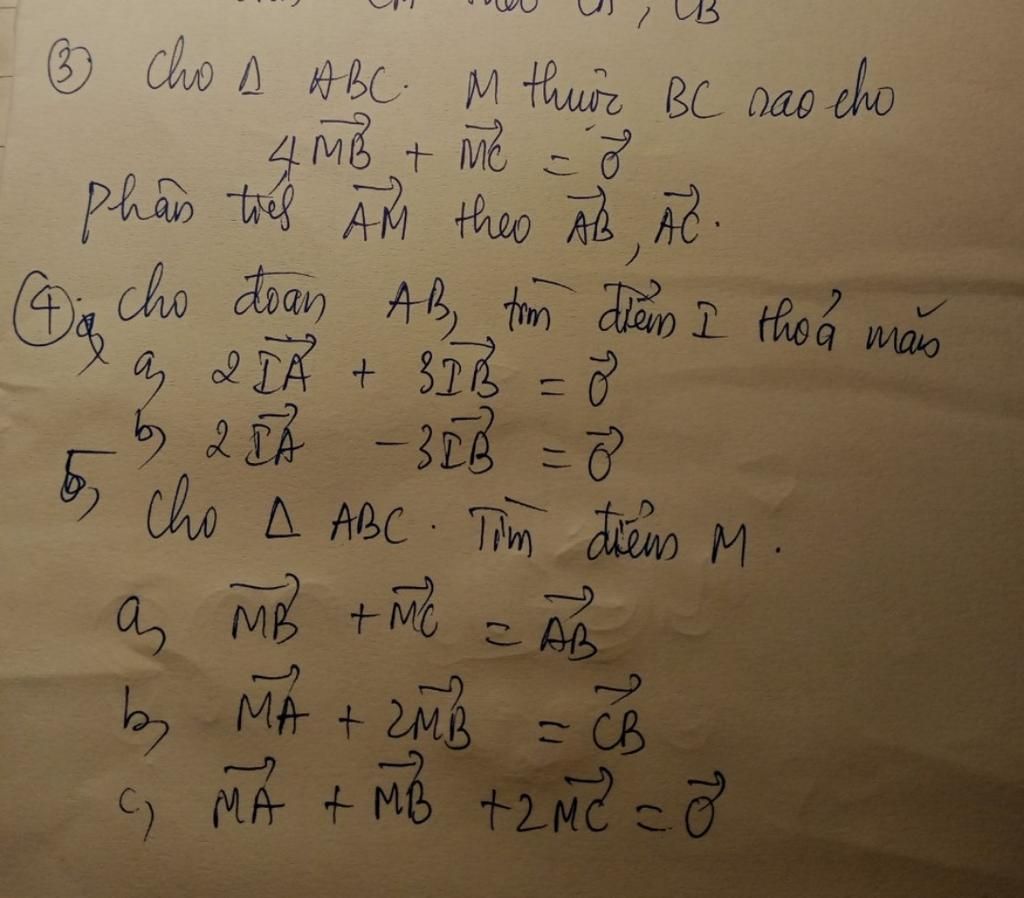 CM theo CA, CB
③ Cho Δ ABC. M thuộc BC sao cho
4\overrightarrow{MB} + \overrightarrow{MC} = \vec{0}
Phân tích \overrightarrow{AM} theo \overrightarrow{AB}, \overrightarrow{AC}.
④ Cho đoạn AB, tìm điểm I thoả mãn
a, 2\overrightarrow{IA} + 3\overrightarrow{IB} = \vec{0}
b, 2\overrightarrow{IA} - 3\overrightarrow{IB} = \vec{0}
5, Cho Δ ABC. Tìm điểm M.
a, \overrightarrow{MB} + \overrightarrow{MC} = \overrightarrow{AB}
b, \overrightarrow{MA} + 2\overrightarrow{MB} = \overrightarrow{CB}
c, \overrightarrow{MA} + \overrightarrow{MB} + 2\overrightarrow{MC} = \vec{0}